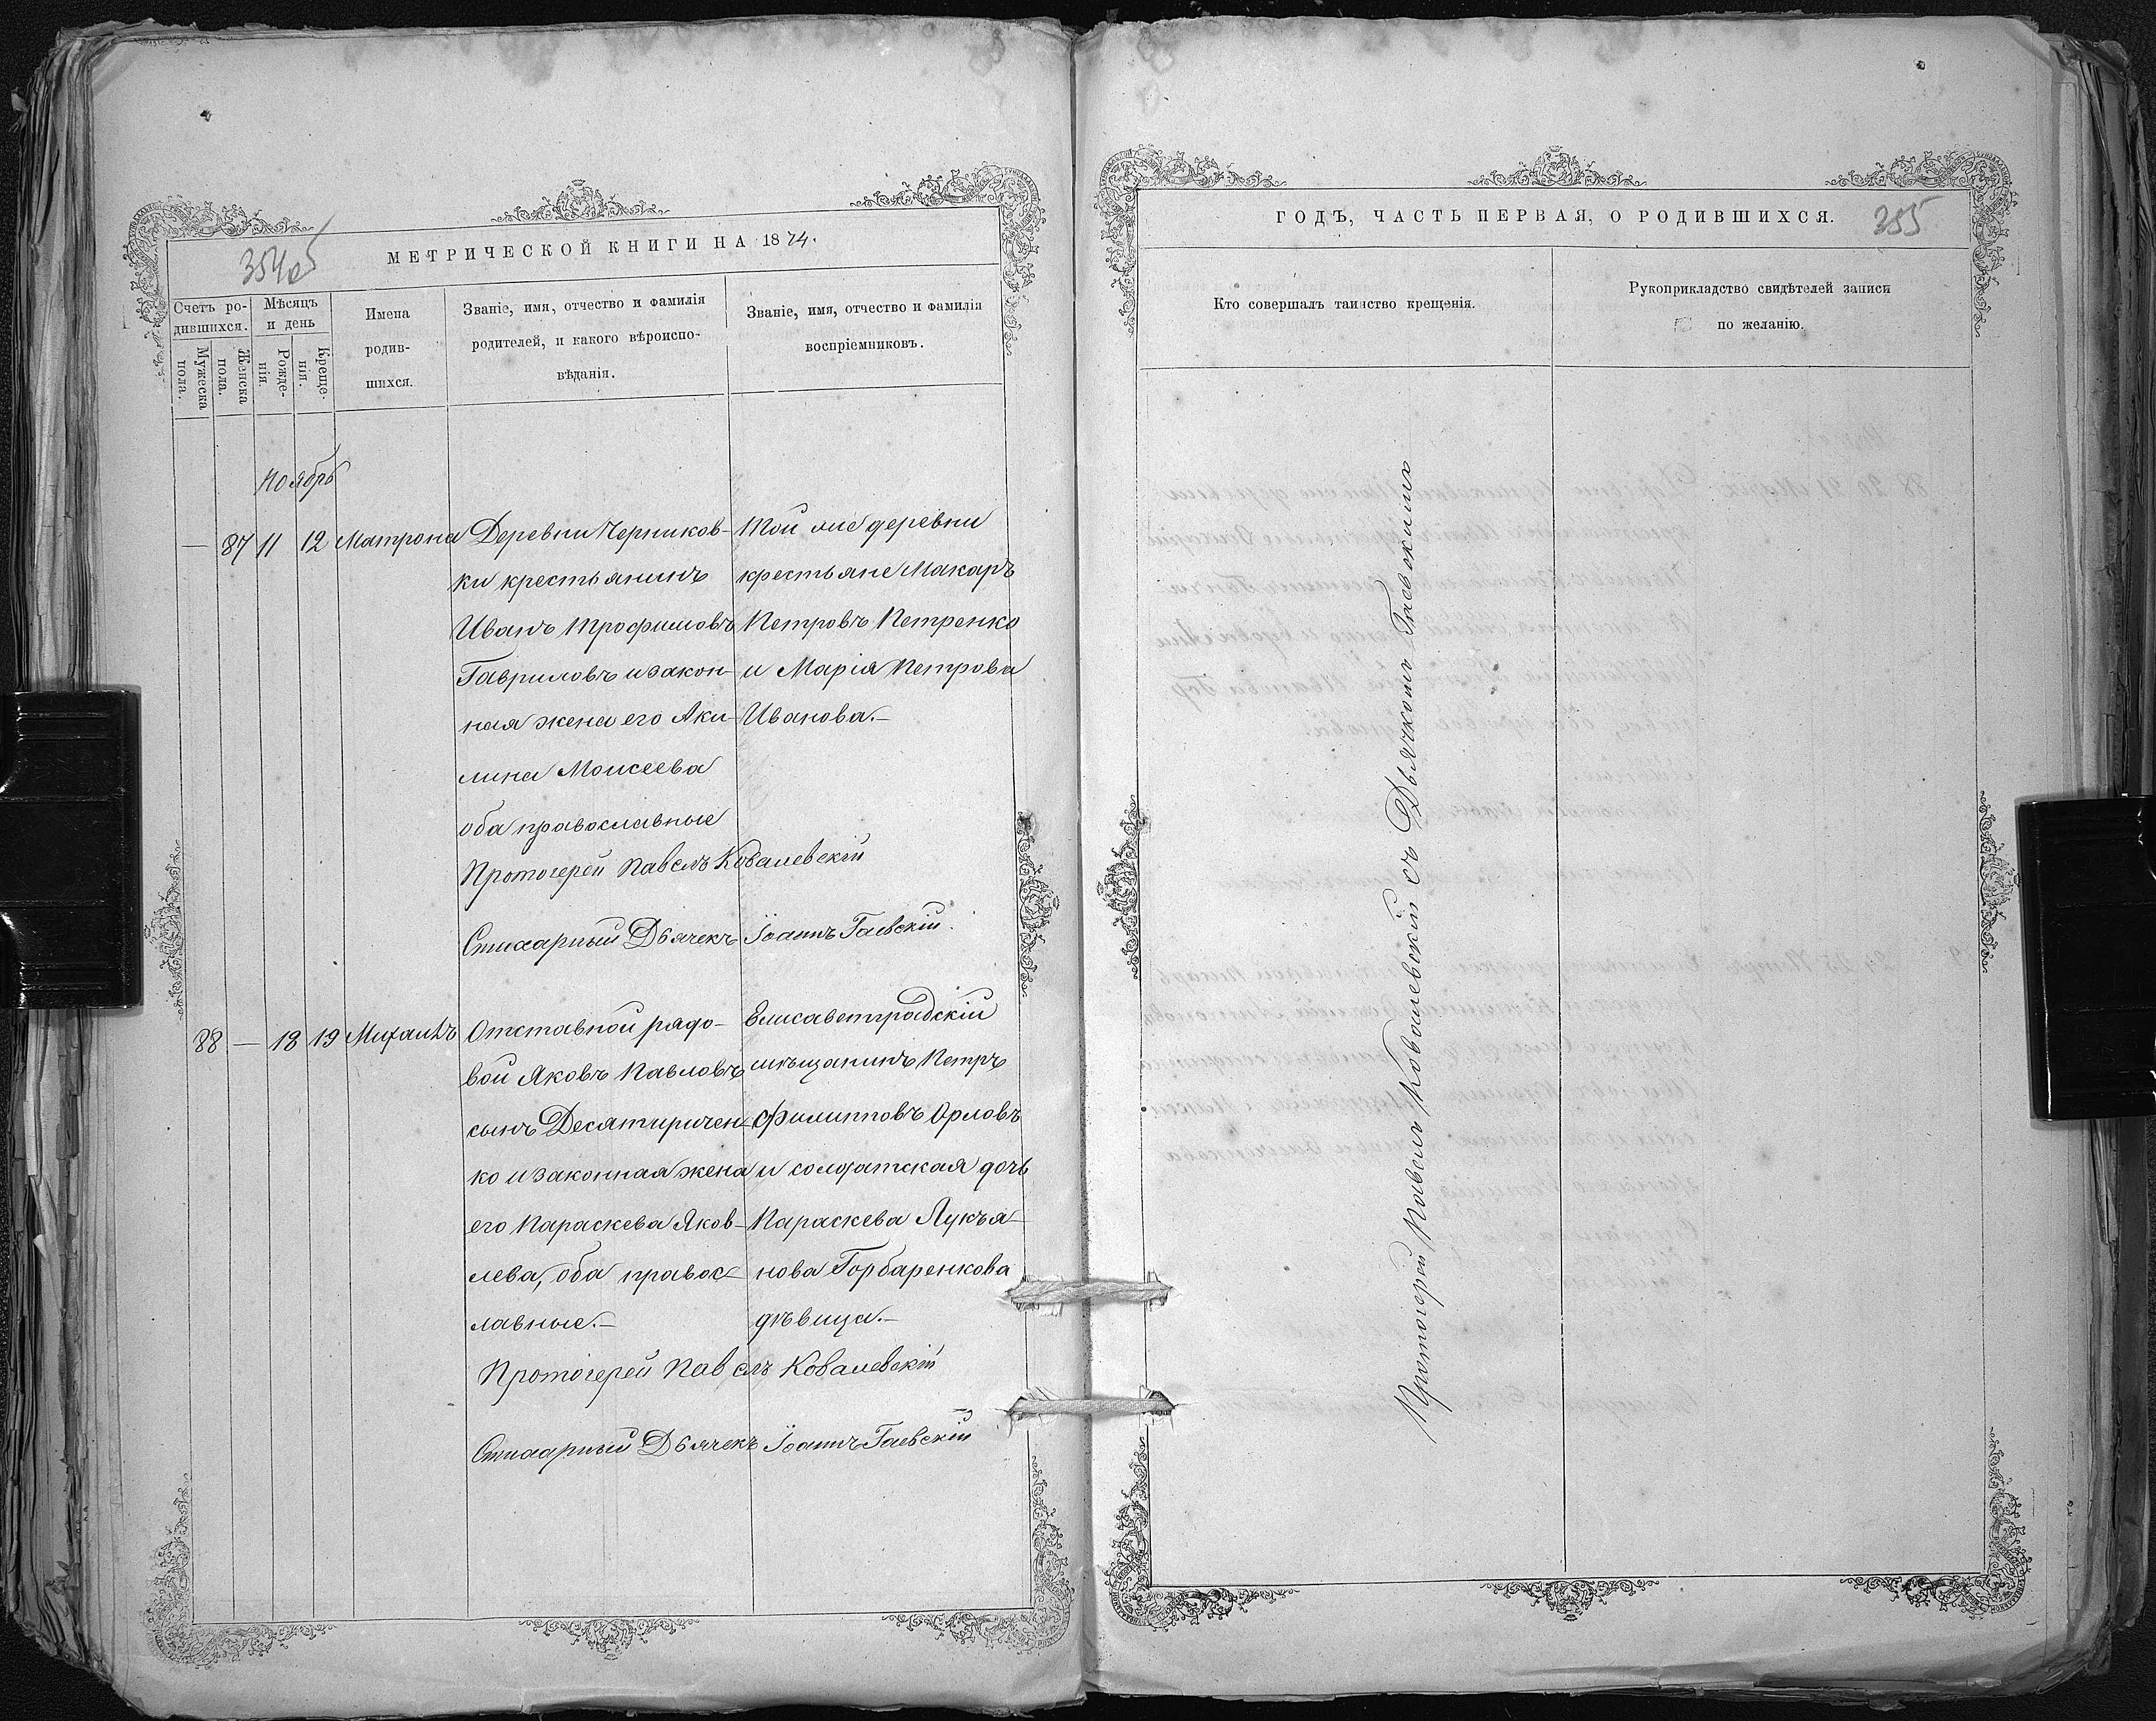 354об
МЕТРИЧЕСКОЙ КНИГИ НА 1874.
Счетъ ро-
дившихся.
Мужеска
пола.
Женска
пола.
Мѣсяцъ
и день
Рожде-
нія.
Креще-
нія.
Имена
родив-
шихся.
Званіе, имя, отчество и фамилія
родителей, и какого вѣроиспо-
вѣданія.
Званіе, имя, отчество и фамилія
воспріемниковъ.
Ноябрь
— 87 11 12 Матрона
Деревни Черников-
ки крестьянинъ
Иванъ Трофимовъ
Гавриловъ и закон-
ная жена его Аки-
лина Моисеева
оба православные
Той же деревни
крестьяне Макаръ
Петровъ Петренко
и Марія Петрова
Иванова.—
Протоіерей Павелъ Ковалевскій
Стихарный Дьячекъ Іоаннъ Гаевскій.
88 — 18 19 Михаилъ
Отставной рядо-
вой Яковъ Павловъ
сынъ Десятиричен-
ко и законная жена
его Параскева Яков-
лева, оба правос-
лавные.—
Елисаветградскій
мѣщанинъ Петръ
Филипповъ Орловъ
и солдатская дочь
Параскева Лукья-
нова Горбаренкова
дѣвица.—
Протоіерей Павелъ Ковалевскій
Стихарный Дьячекъ Іоаннъ Гаевскій
ГОДЪ, ЧАСТЬ ПЕРВАЯ, О РОДИВШИХСЯ.
355
Кто совершалъ таинство крещенія.
Рукоприкладство свидѣтелей записи
по желанію.
Протоіерей Павелъ Ковалевскій съ Дьячкомъ Гаевскимъ